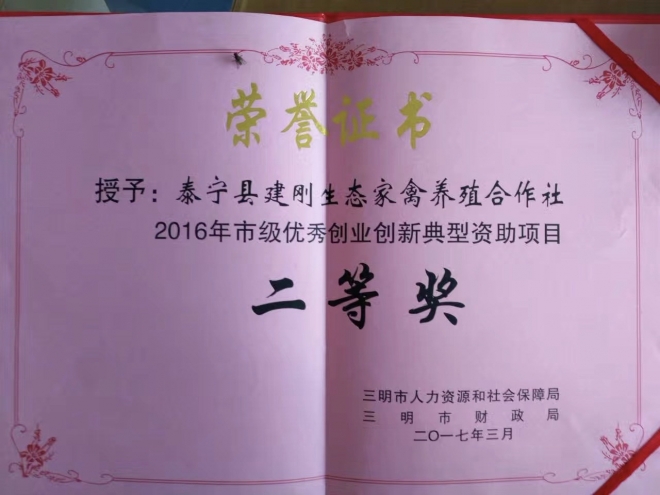 荣誉证书
授予：泰宁县建刚生态家禽养殖合作社
2016年市级优秀创业创新典型资助项目
二等奖
三明市人力资源和社会保障局
三明市财政局
二〇一七年三月